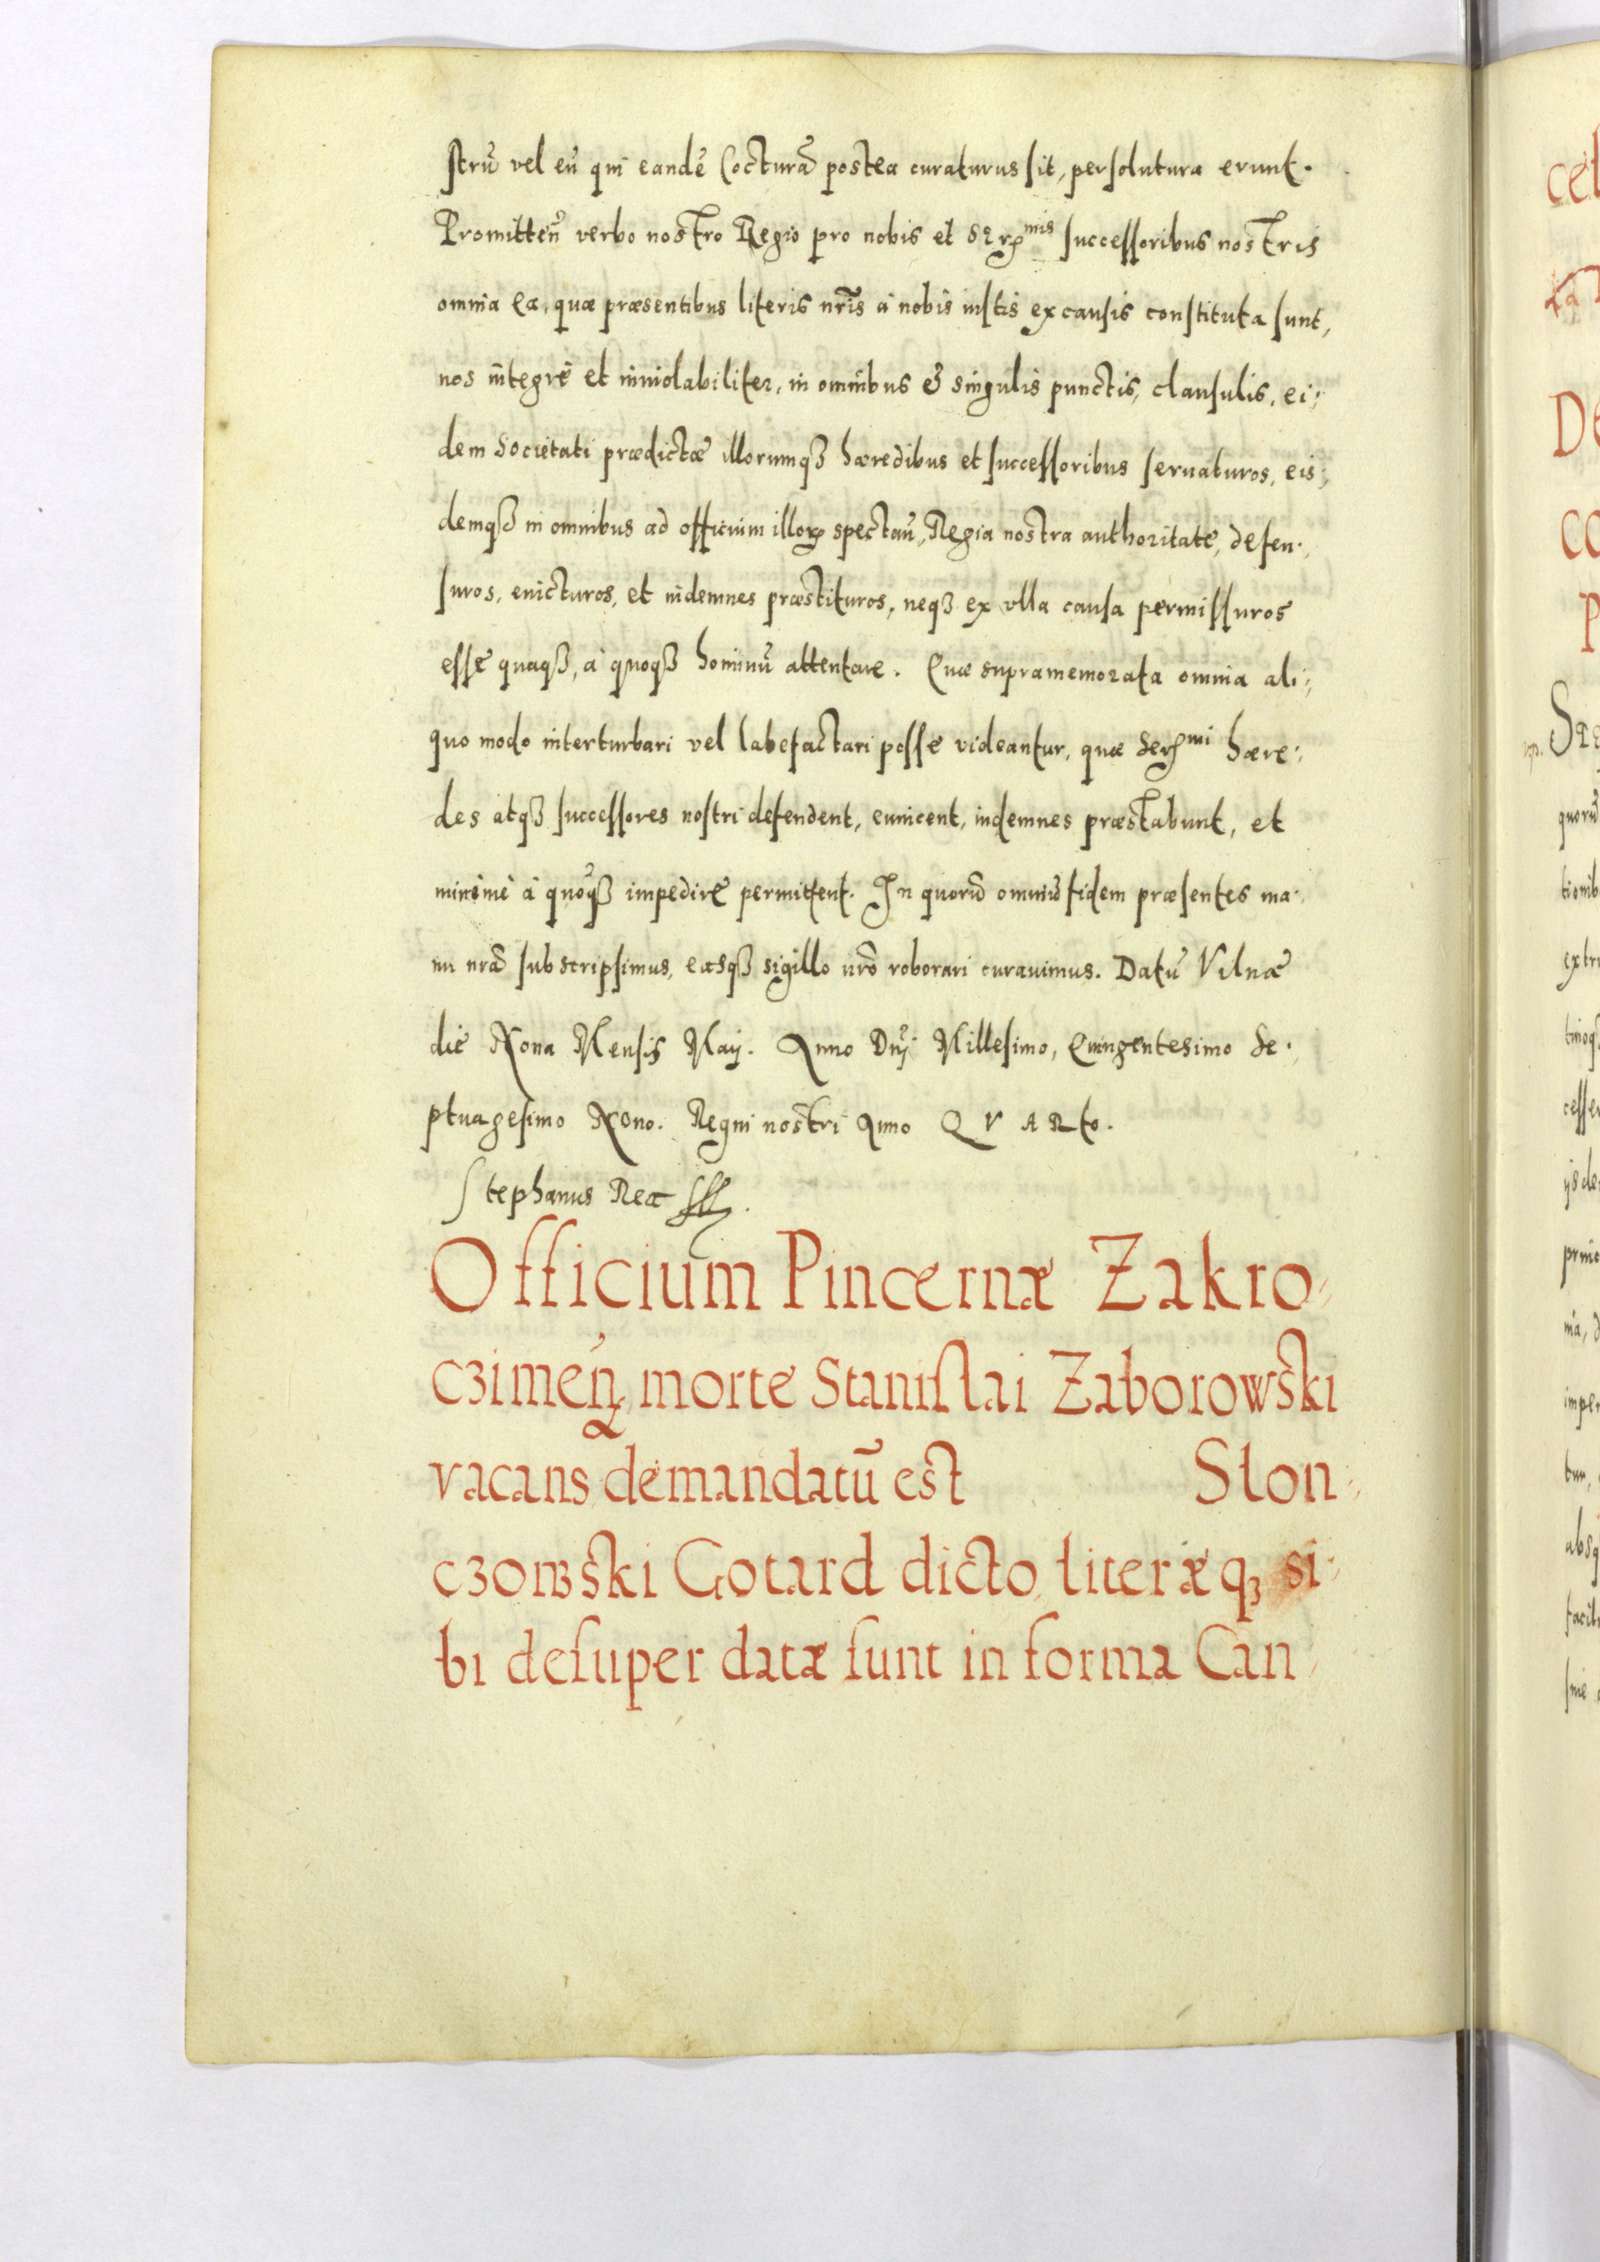 strũ vel eũ qui eandẽ Cocturã postea curaturus sit, persolutura erunt.
Promitteñ verbo nostro Regio pro nobis et successoribus nostris
omnia ea, quæ præsentibus literis nr̃is à nobis iustis ex causis constituta sunt,
nos integrè et inuiolabiliter, in omnibus & singulis punctis, clausulis, ei:
dem Societati prædictæ illorumqꝫ hæredibus et successoribus seruaturos, eis:
demqꝫ in omnibus ad officium illoꝝ spectañ, Regia nostra authoritate, defen:
suros, euicturos, et indemnes præstituros, neqꝫ ex vlla causa permissuros
esse quaqꝫ, à quoqꝫ hominũ attentare. Quæ supramemorata omnia ali:
quo modo interturbari vel labefactari posse videantur, quæ hære:
des atqꝫ successores nostri defendent, euincent, indemnes præstabunt, et
minimè à quõqꝫ impedire permittent. In quorũ omniũ fidem præsentes ma:
nu nrã subscripsimus, easqꝫ sigillo nrõ roborari curauimus. Datũ Vilnæ
die Nona Mensis Maij. Anno Dñi Millesimo, Quingentesimo Se:
ptuagesimo Nono. Regni nostri Anno QVARto.
Stephanus Rex
Officium Pincernæ Zakro:
cꝫimeñ morte Stanislai Zaborowski
vacans demandatũ est Slon:
cꝫowski Gotard dicto literæqꝫ si:
bi desuper datæ sunt in forma Can:
cel
De
co
P
quorũ
tionib
extr